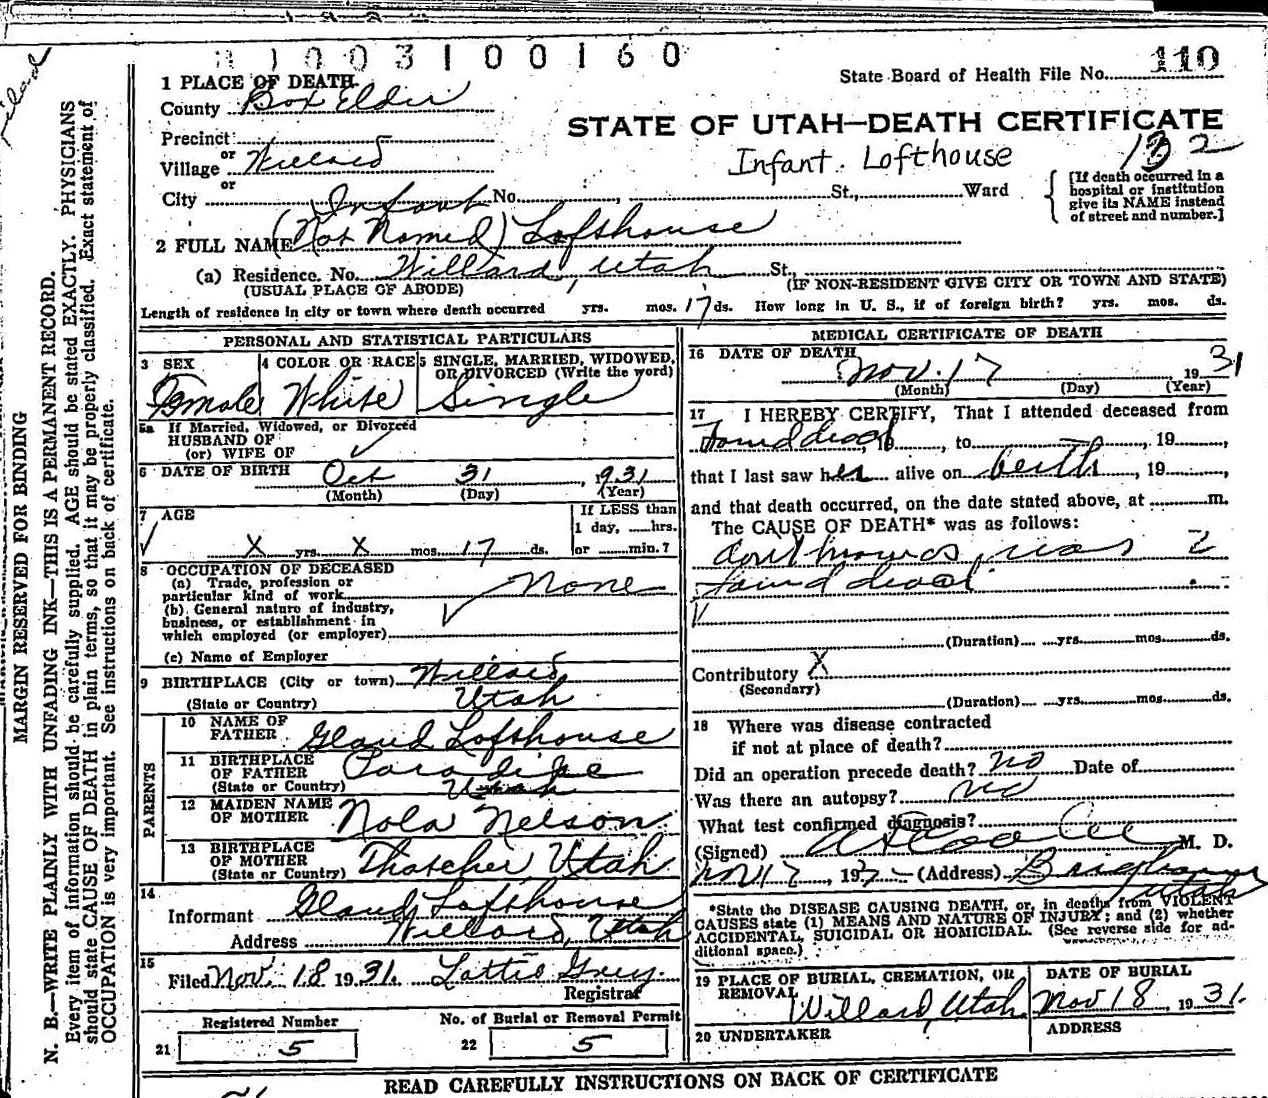 1003100160
State Board of Health File No. 110
1 PLACE OF DEATH
County Box Elder
STATE OF UTAH—DEATH CERTIFICATE
Precinct
or
Village Willard
Infant. Lofthouse
132
or
City No. St., Ward
[If death occurred in a hospital or institution give its NAME instead of street and number.]
Infant
2 FULL NAME (Not Named) Lofthouse
(a) Residence. No. Willard, Utah St.,
(USUAL PLACE OF ABODE) (IF NON-RESIDENT GIVE CITY OR TOWN AND STATE)
Length of residence in city or town where death occurred yrs. mos. 17 ds. How long in U. S., if of foreign birth? yrs. mos. ds.
PERSONAL AND STATISTICAL PARTICULARS
3 SEX
Female
4 COLOR OR RACE
White
5 SINGLE, MARRIED, WIDOWED, OR DIVORCED (Write the word)
Single
5a If Married, Widowed, or Divorced
HUSBAND OF
(or) WIFE OF
6 DATE OF BIRTH Oct 31, 1931
(Month) (Day) (Year)
7 AGE
X yrs. X mos. 17 ds.
If LESS than
1 day, hrs.
or min.?
8 OCCUPATION OF DECEASED
(a) Trade, profession or
particular kind of work None
(b) General nature of industry,
business, or establishment in
which employed (or employer)
(c) Name of Employer
9 BIRTHPLACE (City or town) Willard
(State or Country) Utah
PARENTS
10 NAME OF
FATHER Gland Lofthouse
11 BIRTHPLACE
OF FATHER Paradise
(State or Country) Utah
12 MAIDEN NAME
OF MOTHER Nola Nelson
13 BIRTHPLACE
OF MOTHER
(State or Country) Thatcher Utah
14
Informant Gland Lofthouse
Address Willard, Utah
15
Filed Nov. 18 1931. Lottie Grey.
Registrar
Registered Number
21 5
No. of Burial or Removal Permit
22 5
MEDICAL CERTIFICATE OF DEATH
16 DATE OF DEATH
Nov. 17 1931
(Month) (Day) (Year)
17 I HEREBY CERTIFY, That I attended deceased from
found dead, to , 19 ,
that I last saw her alive on birth, 19 ,
and that death occurred, on the date stated above, at m.
The CAUSE OF DEATH* was as follows:
was
found dead
(Duration) yrs. mos. ds.
Contributory X
(Secondary)
(Duration) yrs. mos. ds.
18 Where was disease contracted
if not at place of death?
Did an operation precede death? no Date of
Was there an autopsy? no
What test confirmed diagnosis?
(Signed) M. D.
Nov 17, 193 (Address) Brigham
Utah
*State the DISEASE CAUSING DEATH, or, in deaths from VIOLENT
CAUSES state (1) MEANS AND NATURE OF INJURY; and (2) whether
ACCIDENTAL, SUICIDAL OR HOMICIDAL. (See reverse side for ad-
ditional space.)
19 PLACE OF BURIAL, CREMATION, OR
REMOVAL
Willard, Utah
DATE OF BURIAL
Nov 18, 1931.
20 UNDERTAKER
ADDRESS
READ CAREFULLY INSTRUCTIONS ON BACK OF CERTIFICATE
MARGIN RESERVED FOR BINDING
N. B.—WRITE PLAINLY WITH UNFADING INK—THIS IS A PERMANENT RECORD.
Every item of information should be carefully supplied. AGE should be stated EXACTLY. PHYSICIANS
should state CAUSE OF DEATH in plain terms, so that it may be properly classified. Exact statement of
OCCUPATION is very important. See instructions on back of certificate.